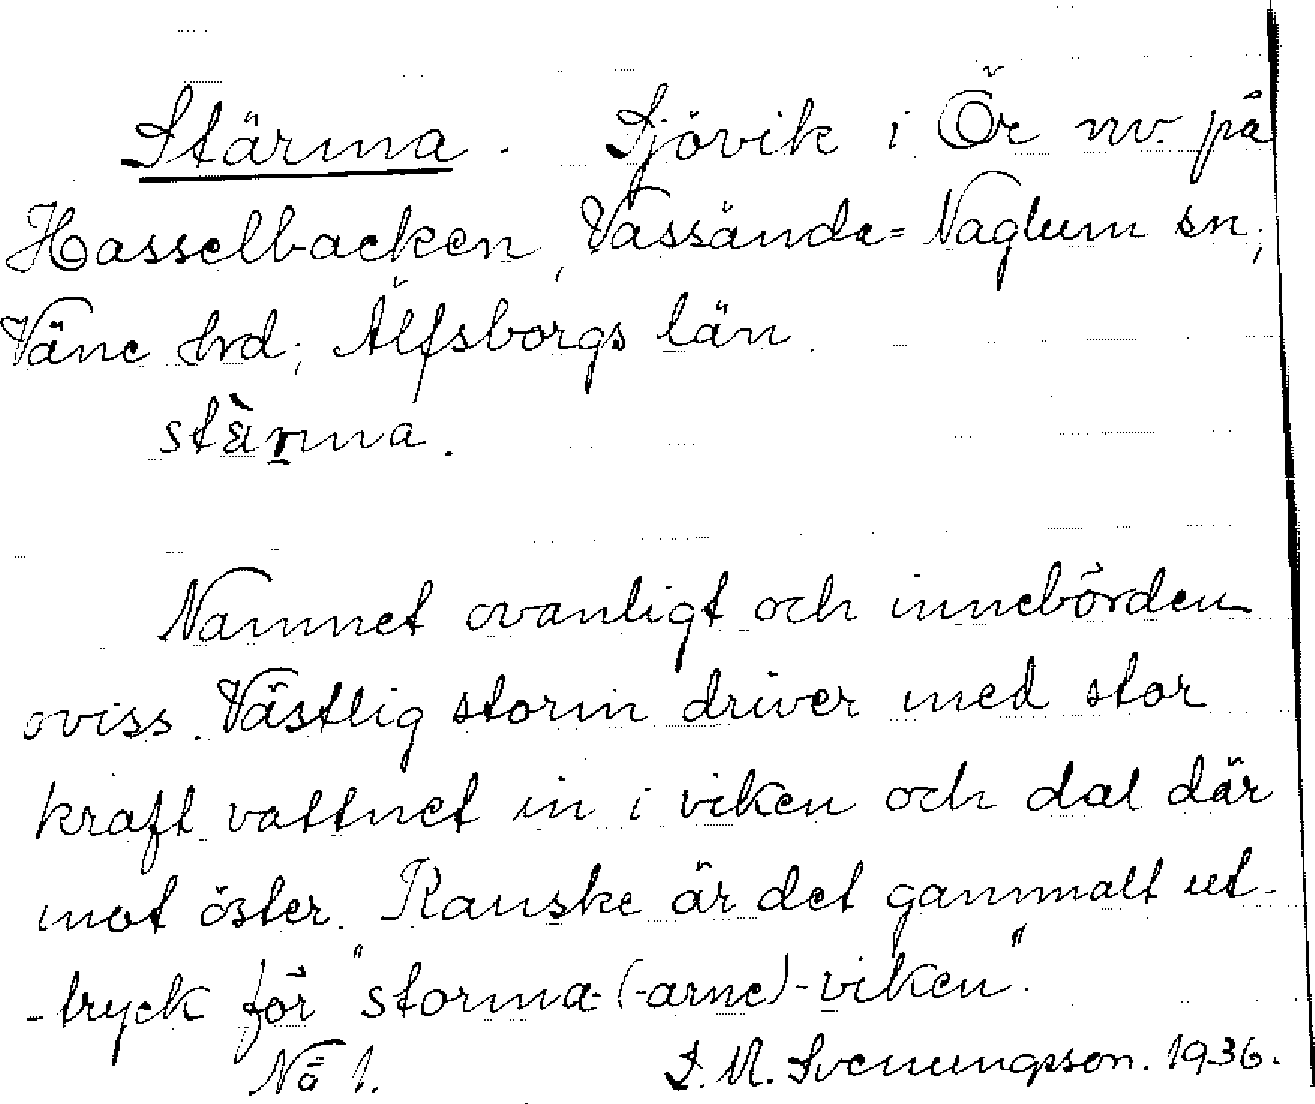 Stärma. Sjövik i Ör nv. på
Hasselbacken, Vassända=Naglum sn;
Väne hrd; Älfsborgs län.
stàrma.
Namnet ovanligt och innebörden
oviss. Västlig storm driver med stor
kraft vattnet in i viken och dal där
mot öster. Kanske är det gammalt ut-
-tryck för "storma-(-arne)-viken".
No 1. S. M. Svenungsson. 1936.